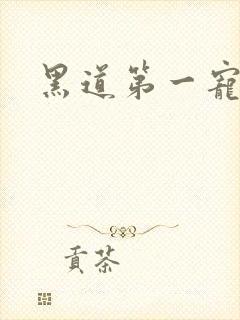 黑道第一寵
貢茶